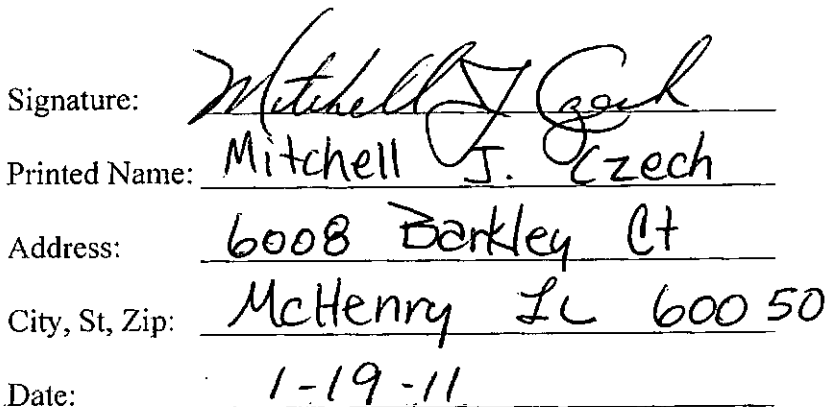 Signature: Mitchell J Czech
Printed Name: Mitchell J. Czech
Address: 6008 Barkley Ct
City, St, Zip: McHenry IL 60050
Date: 1-19-11